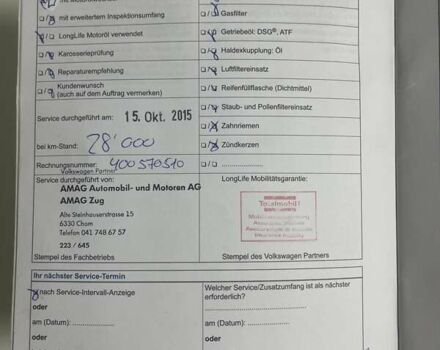 mit erweitertem Inspektionsumfang
LongLife Motoröl verwendet
Karosserieprüfung
Reparaturempfehlung
Kundenwunsch
(auch auf dem Auftrag vermerken)
Gasfilter
Getriebeöl: DSG®, ATF
Haldexkupplung: Öl
Luftfiltereinsatz
Reifenfüllflasche (Dichtmittel)
Staub- und Pollenfiltereinsatz
Zahnriemen
Zündkerzen
Service durchgeführt am: 15. Okt. 2015
bei km-Stand: 28'000
Rechnungsnummer: 400570510
Volkswagen Partner
Service durchgeführt von:
AMAG Automobil- und Motoren AG
AMAG Zug
Alte Steinhauserstrasse 15
6330 Cham
Telefon 041 748 67 57
223 / 645
Stempel des Fachbetriebs
LongLife Mobilitätsgarantie:
Totalmobil!
Stempel des Volkswagen Partners
Ihr nächster Service-Termin
nach Service-Intervall-Anzeige
oder
am (Datum):
oder
Welcher Service/Zusatzumfang ist als nächster
erforderlich?
oder
am (Datum):